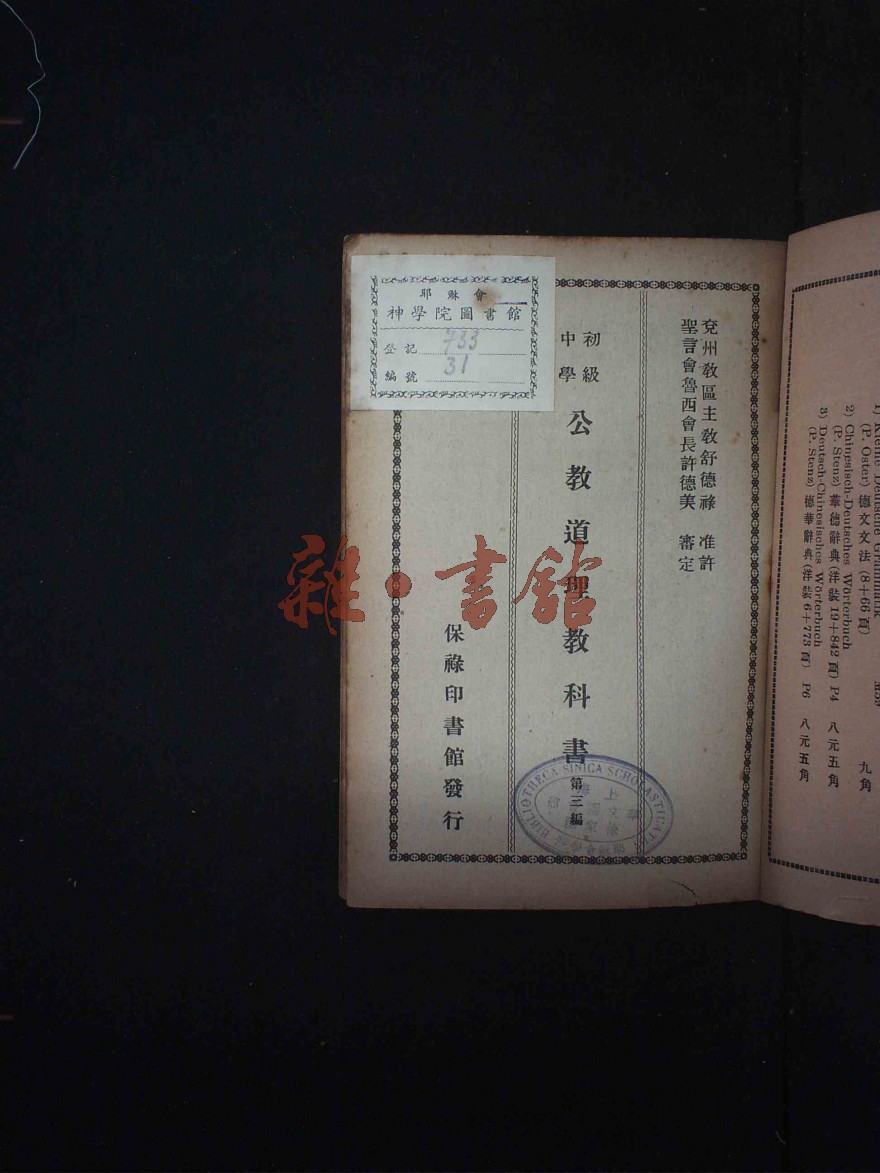 耶穌會
神學院圖書館
登記 733
編號 31
兗州教區主教舒德祿 准許
聖言會魯西會長許德美 審定
初級
中學
公教道理教科書 第三編
保祿印書館發行
雜·書館
BIBLIOTHECA SINICA SCHOLASTICAT
1) Kleine Deutsche Grammatik
(P. Oster) 德文文法 (8+66 頁) 九角
2) Chinesisch-Deutsches Wörterbuch
(P. Stenz) 華德辭典 (洋裝 19+842 頁) P4 八元五角
3) Deutsch-Chinesisches Wörterbuch
(P. Stenz) 德華辭典 (洋裝 6+773 頁) P6 八元五角